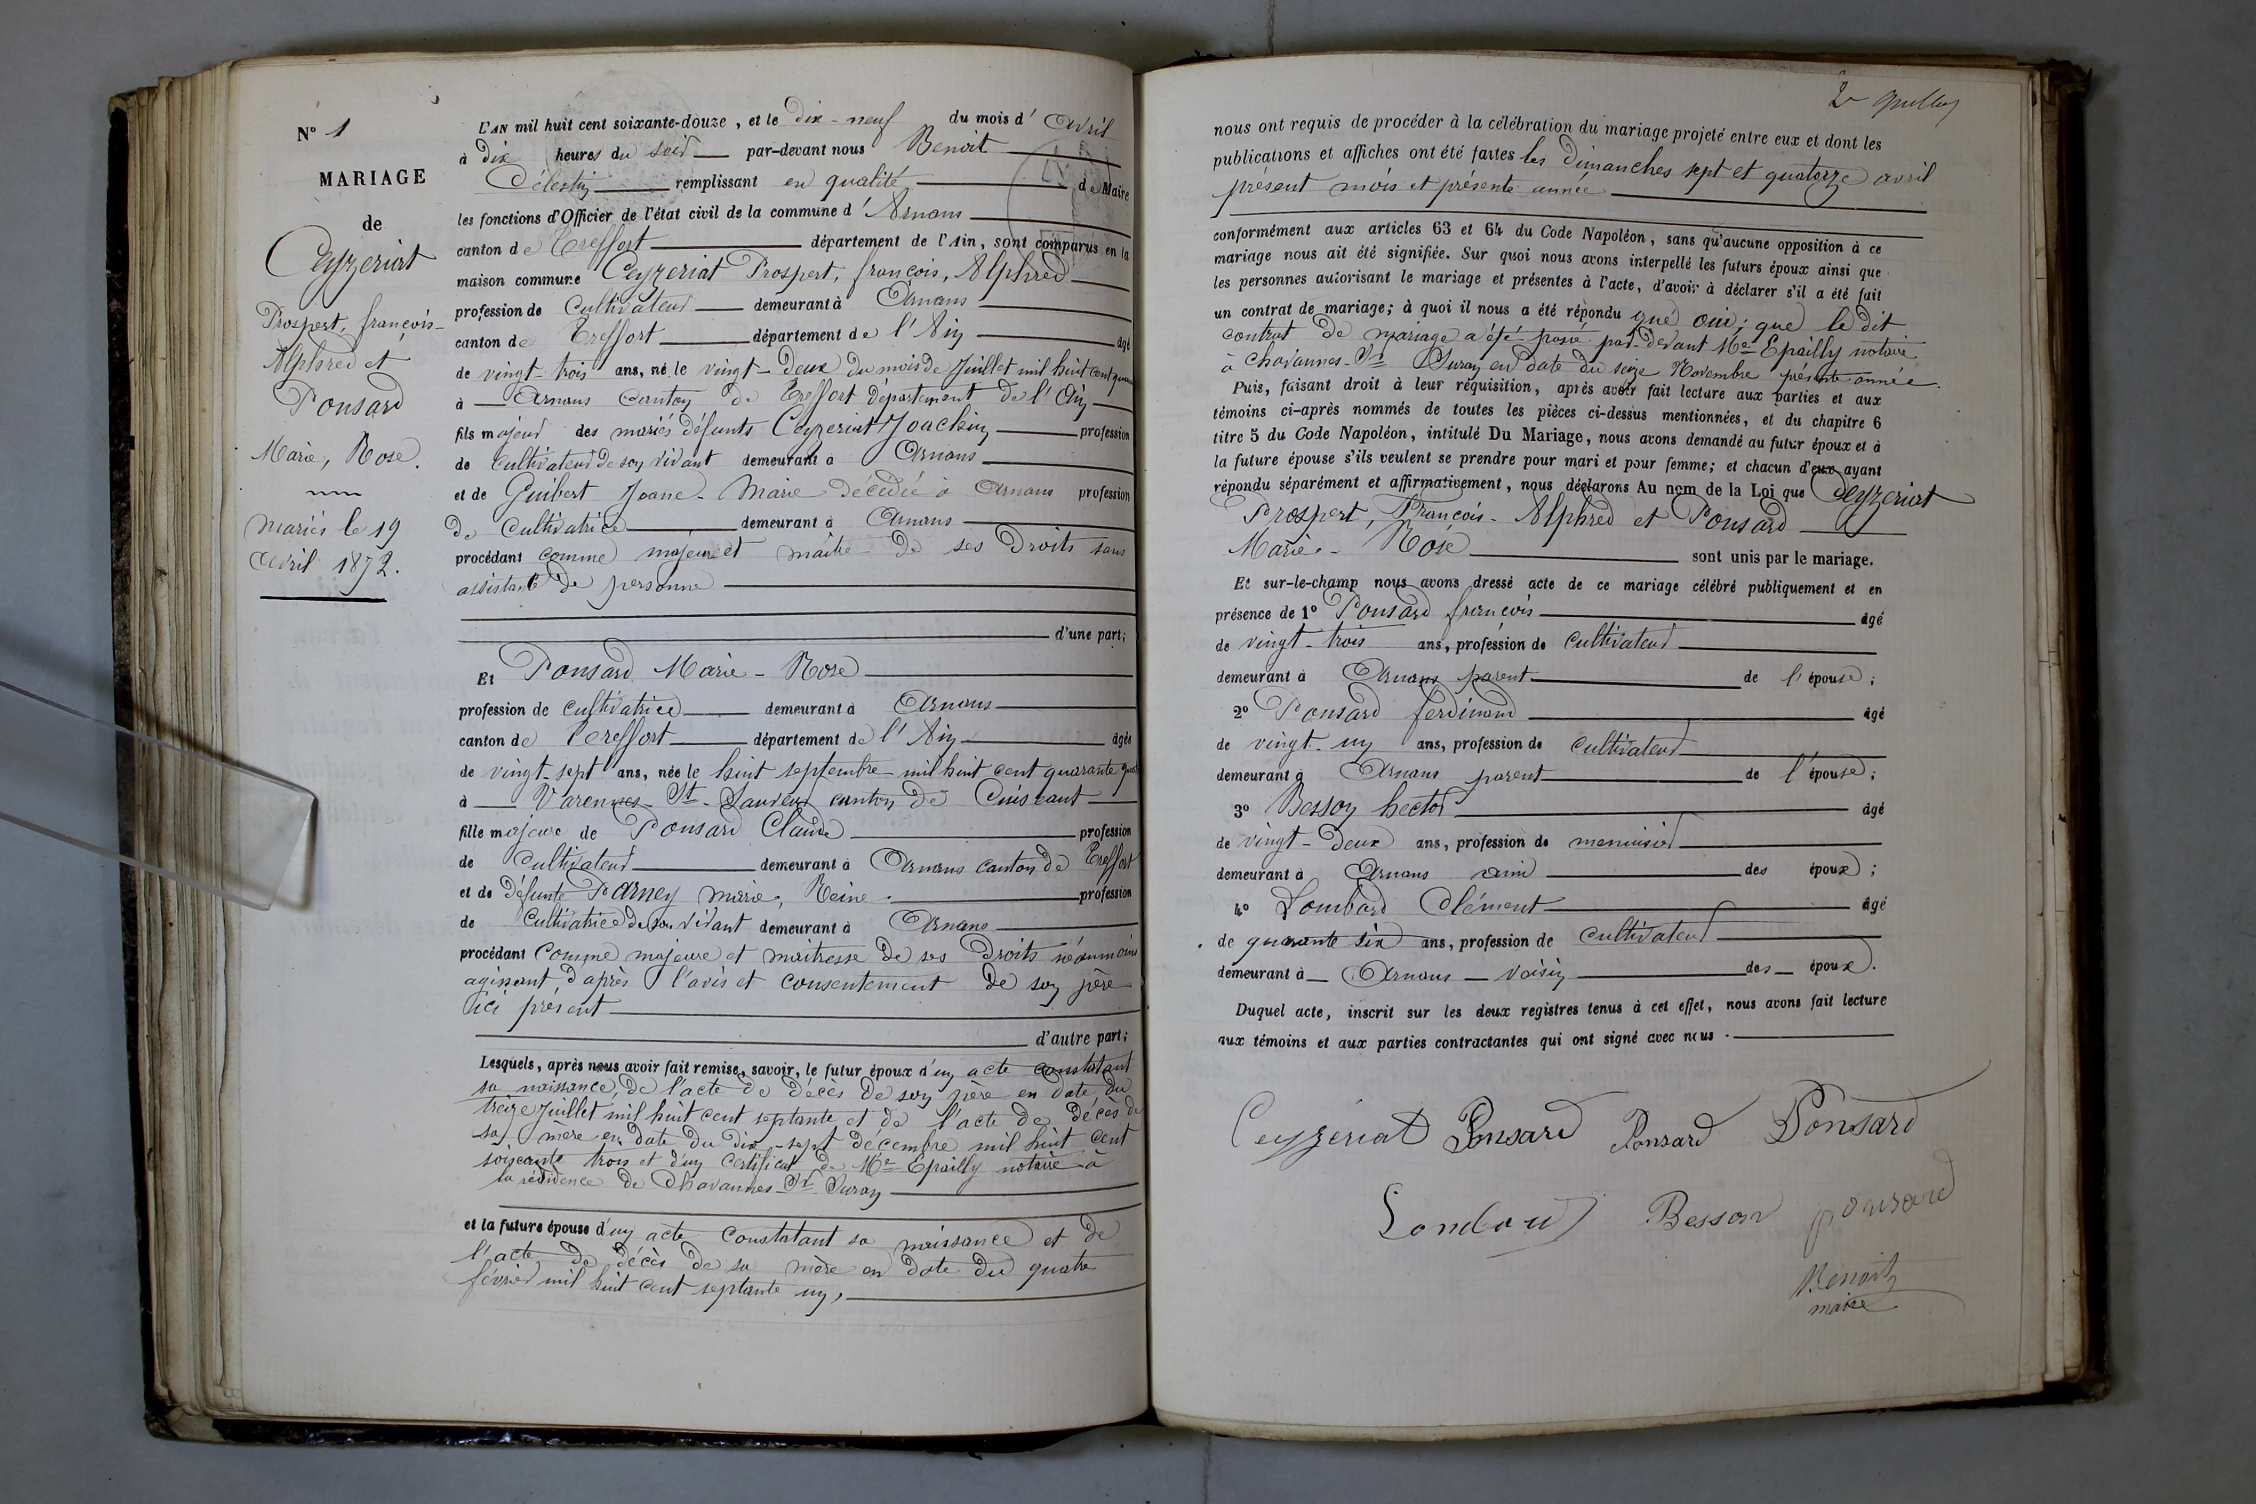 N° 1
MARIAGE
de
Ceyzeriat
Prospert, françois-
Alphred et
Ponsard
Marie, Rose.
mariés le 19
avril 1872.
L'AN mil huit cent soixante-douze, et le dix-neuf du mois d'avril
à dix heures du soir par-devant nous Benoit
Célestin remplissant en qualité de Maire
les fonctions d'Officier de l'état civil de la commune d'Arnans
canton de Treffort département de l'Ain, sont comparus en la
maison commune Ceyzeriat Prospert, françois, Alphred
profession de Cultivateur demeurant à Arnans
canton de Treffort département de l'Ain âgé
de vingt-trois ans, né le vingt-deux du mois de Juillet mil huit cent
à Arnans canton de Treffort département de l'Ain
fils majeur des mariés défunts Ceyzeriat Joachin profession
de Cultivateur de son vivant demeurant à Arnans
et de Guibert Jeane-Marie décédée à Arnans profession
de Cultivatrice demeurant à Arnans
procédant comme majeur et maître de ses Droits sans
assistance de personne
d'une part;
Et Ponsard Marie-Rose
profession de cultivatrice demeurant à Arnans
canton de Treffort département de l'Ain âgée
de vingt-sept ans, née le huit septembre mil huit cent quarante
à Varennes St-Sauveur canton de Cuiseaut
fille majeure de Ponsard Claude profession
de Cultivateur demeurant à Arnans canton de Treffort
et de Défunte Parney marie, Reine profession
de Cultivatrice de son vivant demeurant à Arnans
procédant comme majeure et maitresse de ses Droits néanmoins
agissant d'après l'avis et consentement de son père
ici présent
d'autre part;
Lesquels, après nous avoir fait remise, savoir, le futur époux d'un acte constatant
sa naissance, de l'acte de décès de son père en date du
treize Juillet mil huit cent septante et de l'acte de décès de
sa mère en date du dix-sept décembre mil huit cent
soixante trois et d'un certificat de Me Epailly notaire à
la résidence de Chavannes-Sr Suran
et la future épouse d'un acte constatant sa naissance et de
l'acte de décès de sa mère en date du quatre
février mil huit cent septante un,
nous ont requis de procéder à la célébration du mariage projeté entre eux et dont les
publications et affiches ont été faites les dimanches sept et quatorze avril
présent mois et présente année
conformément aux articles 63 et 64 du Code Napoléon, sans qu'aucune opposition à ce
mariage nous ait été signifiée. Sur quoi nous avons interpellé les futurs époux ainsi que
les personnes autorisant le mariage et présentes à l'acte, d'avoir à déclarer s'il a été fait
un contrat de mariage; à quoi il nous a été répondu que oui; que le dit
contrat de mariage a été passé par-devant Me Epailly notaire
à Chavannes-Sr Suran en date du seize Novembre présente année.
Puis, faisant droit à leur réquisition, après avoir fait lecture aux parties et aux
témoins ci-après nommés de toutes les pièces ci-dessus mentionnées, et du chapitre 6
titre 5 du Code Napoléon, intitulé Du Mariage, nous avons demandé au futur époux et à
la future épouse s'ils veulent se prendre pour mari et pour femme; et chacun d'eux ayant
répondu séparément et affirmativement, nous déclarons Au nom de la Loi que Ceyzeriat
Prospert, François-Alphred et Ponsard
Marie-Rose sont unis par le mariage.
Et sur-le-champ nous avons dressé acte de ce mariage célébré publiquement et en
présence de 1° Ponsard françois âgé
de vingt-trois ans, profession de cultivateur
demeurant à Arnans parent de l'épouse;
2° Ponsard ferdinand âgé
de vingt-un ans, profession de cultivateur
demeurant à Arnans parent de l'épouse;
3° Besson hector âgé
de vingt-deux ans, profession de menuisier
demeurant à Arnans ami des époux;
4° Lombard Clément âgé
de quarante six ans, profession de cultivateur
demeurant à Arnans voisin des époux.
Duquel acte, inscrit sur les deux registres tenus à cet effet, nous avons fait lecture
aux témoins et aux parties contractantes qui ont signé avec nous.
Ceyzeriat Ponsard Ponsard Ponsard
Besson ponsard
Benoit
maire